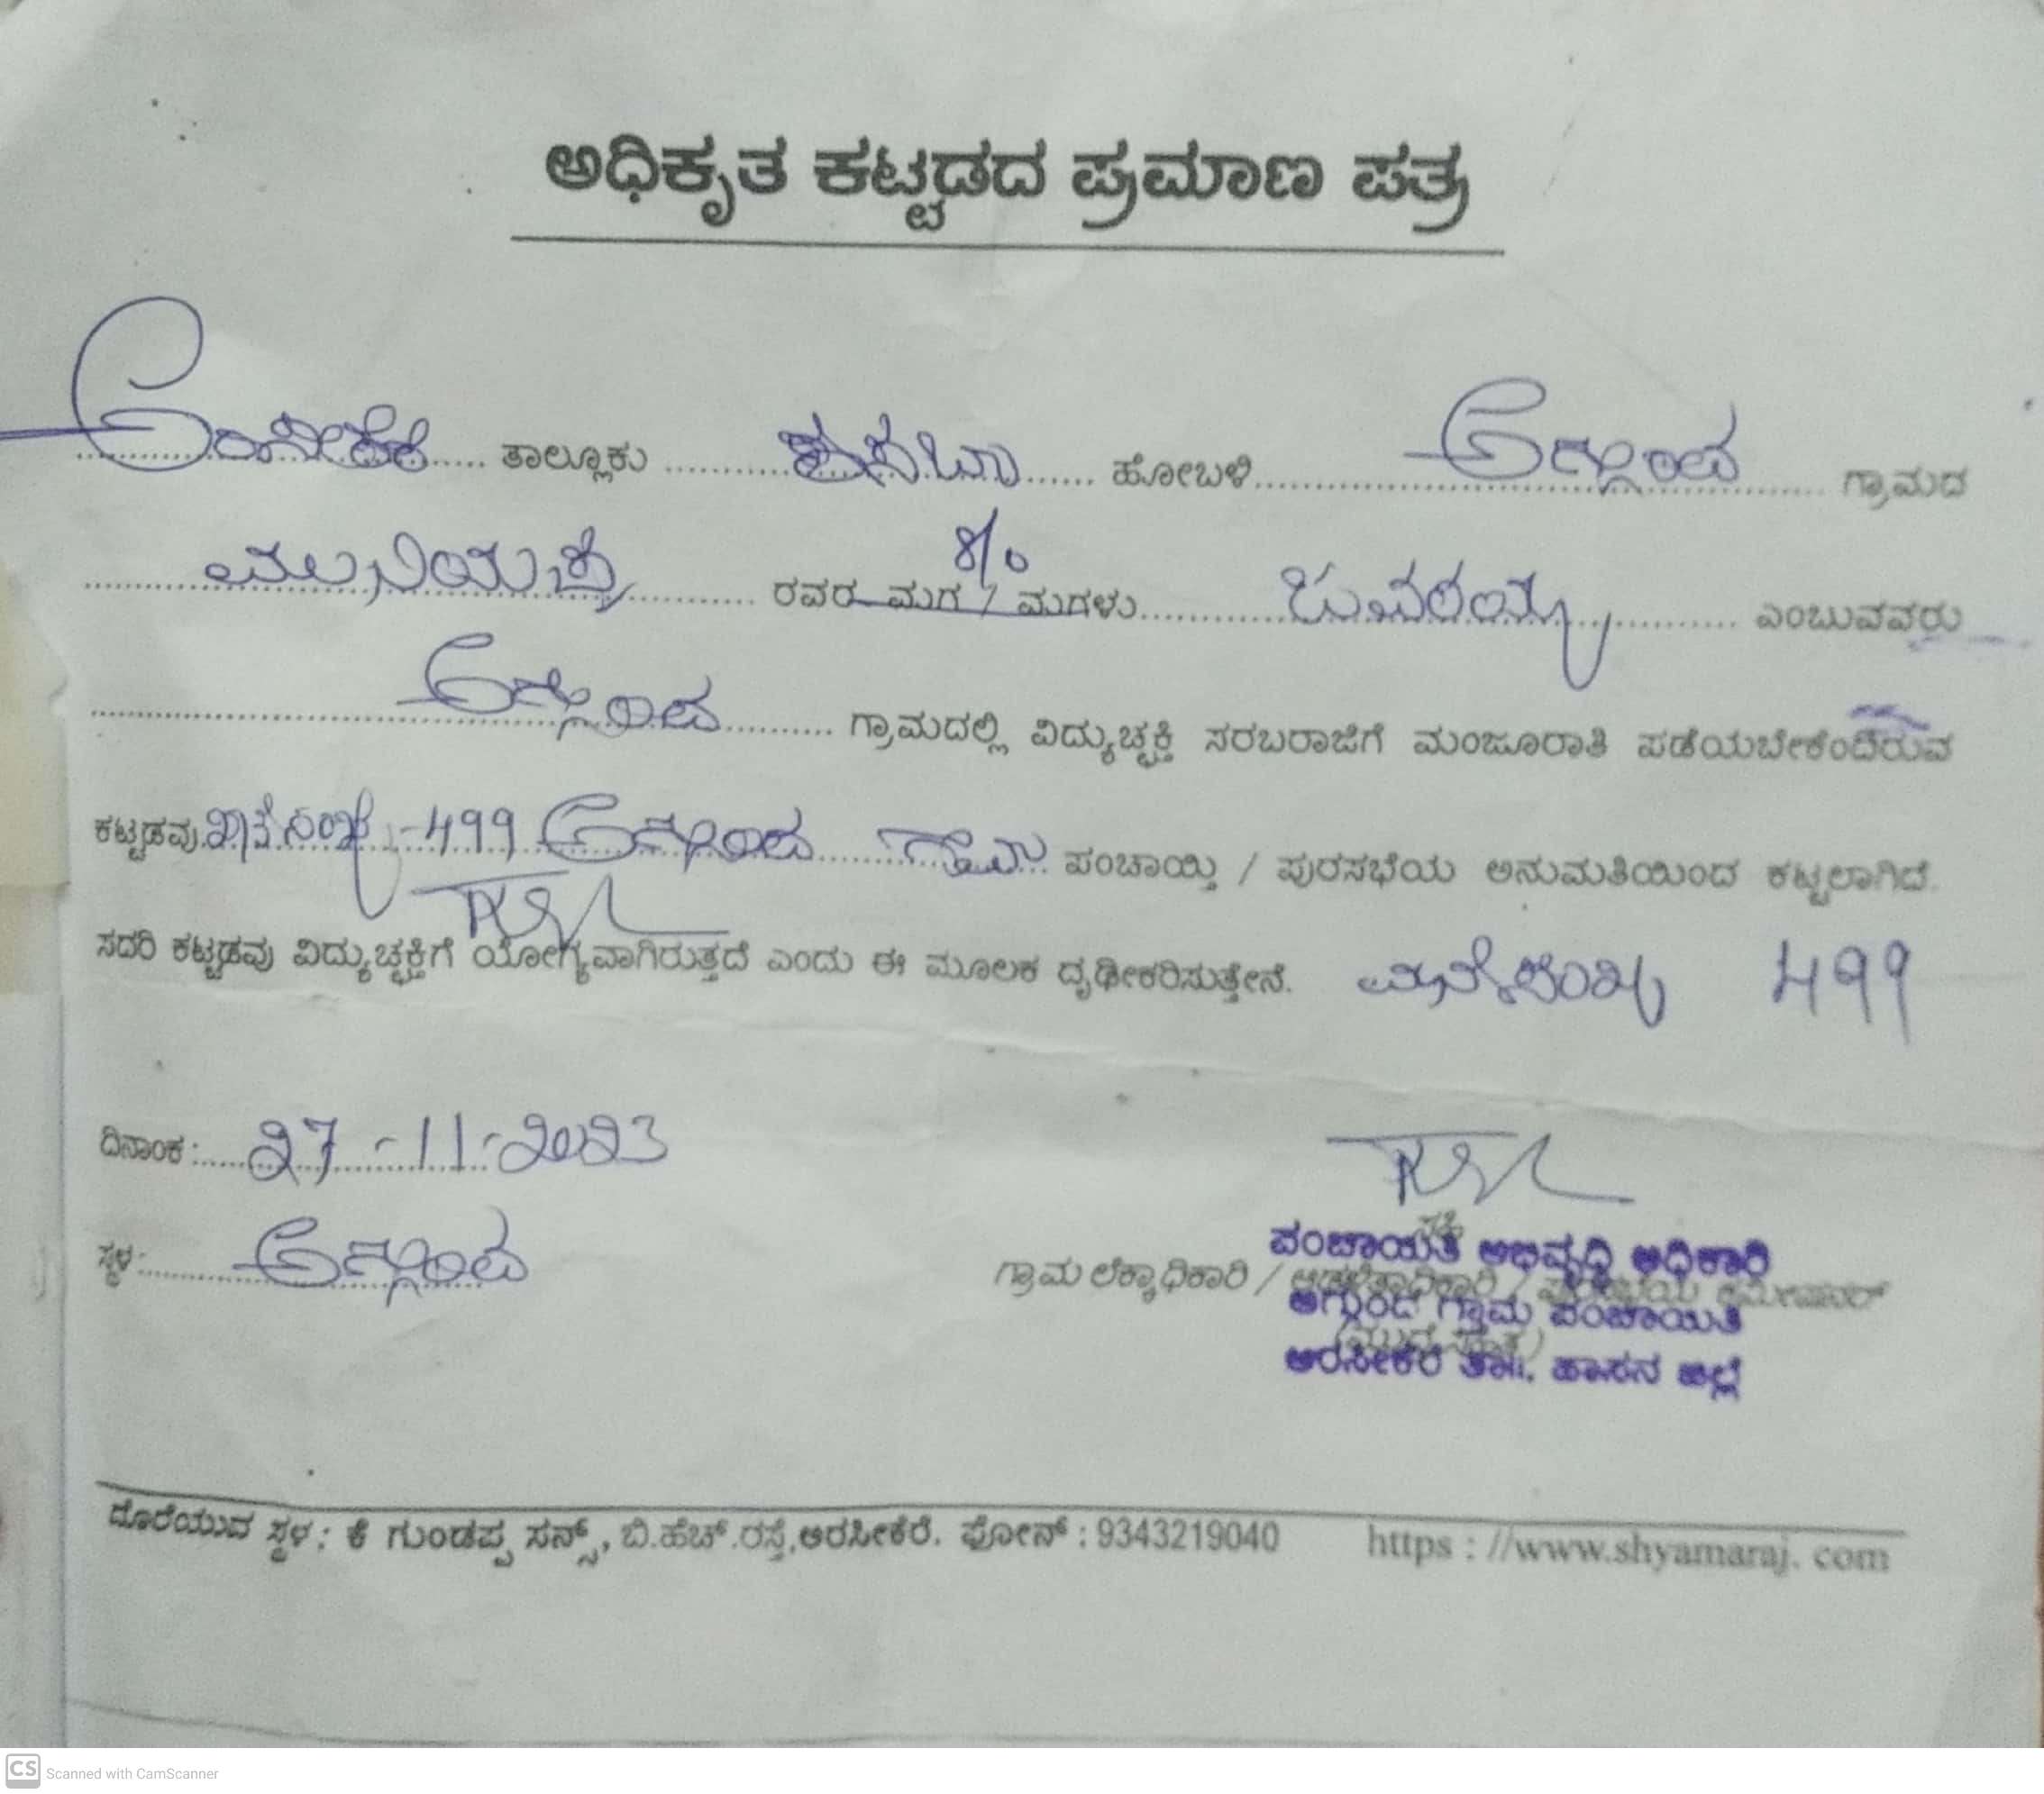 ಅಧಿಕೃತ ಕಟ್ಟಡದ ಪ್ರಮಾಣ ಪತ್ರ
ಅರಸೀಕೆರೆ ತಾಲ್ಲೂಕು ಕಸಬಾ ಹೋಬಳಿ ಅಗ್ಗುಂದ ಗ್ರಾಮದ
ರವರ ಮಗ / ಮಗಳು ಎಂಬುವವರು
ಅಗ್ಗುಂದ ಗ್ರಾಮದಲ್ಲಿ ವಿದ್ಯುಚ್ಛಕ್ತಿ ಸರಬರಾಜಿಗೆ ಮಂಜೂರಾತಿ ಪಡೆಯಬೇಕೆಂದಿರುವ
ಕಟ್ಟಡವು ಖಾತೆ ಸಂಖ್ಯೆ - 499 ಅಗ್ಗುಂದ ಗ್ರಾಮ ಪಂಚಾಯ್ತಿ / ಪುರಸಭೆಯ ಅನುಮತಿಯಿಂದ ಕಟ್ಟಲಾಗಿದೆ.
ಸದರಿ ಕಟ್ಟಡವು ವಿದ್ಯುಚ್ಛಕ್ತಿಗೆ ಯೋಗ್ಯವಾಗಿರುತ್ತದೆ ಎಂದು ಈ ಮೂಲಕ ದೃಢೀಕರಿಸುತ್ತೇನೆ. 499
ದಿನಾಂಕ: 27-11-2023
ಸ್ಥಳ: ಅಗ್ಗುಂದ
ಸಹಿ
ಪಂಚಾಯಿತಿ ಅಭಿವೃದ್ಧಿ ಅಧಿಕಾರಿ
ಗ್ರಾಮ ಲೆಕ್ಕಾಧಿಕಾರಿ / ಆಡಳಿತಾಧಿಕಾರಿ / ಪುರಸಭೆಯ ಕಮೀಷನರ್
ಅಗ್ಗುಂದ ಗ್ರಾಮ ಪಂಚಾಯಿತಿ
ಅರಸೀಕೆರೆ ತಾ||. ಹಾಸನ ಜಿಲ್ಲೆ
ದೊರೆಯುವ ಸ್ಥಳ: ಕೆ ಗುಂಡಪ್ಪ ಸನ್ಸ್, ಬಿ.ಹೆಚ್.ರಸ್ತೆ,ಅರಸೀಕೆರೆ. ಫೋನ್ : 9343219040 https : //www.shyamaraj. com
CS Scanned with CamScanner